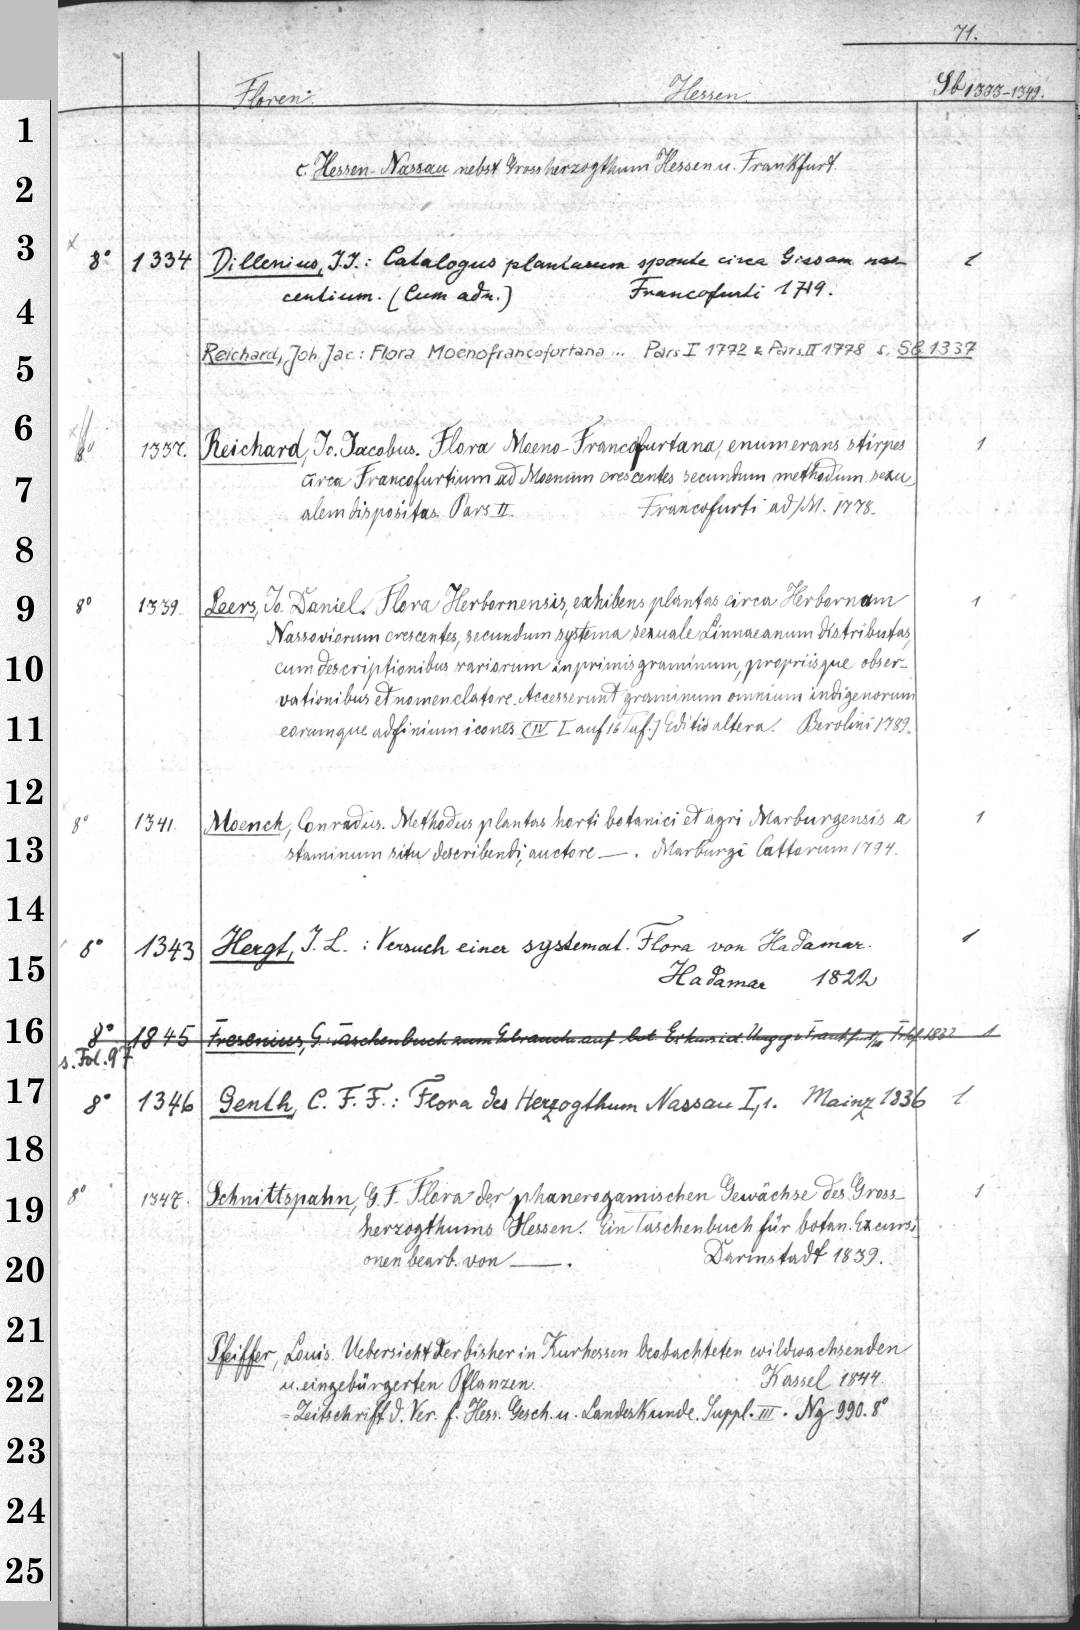 71.
Floren. Hessen. Sb 1333-1349.
c. Hessen-Nassau nebst Grossherzogthum Hessen u. Frankfurt
8° 1334 Dillenius, J.J.: Catalogus plantarum sponte circa Gissam nas- 1
centium. (Cum adn.) Francofurti 1719.
Reichard, Joh. Jac.: Flora Moenofrancofurtana ... Pars I 1772 & Pars II 1778 s. Sb 1337
8° 1337. Reichard, Jo. Jacobus. Flora Moeno-Francofurtana, enumerans stirpes 1
circa Francofurtium ad Moenum crescentes secundum methodum sexu
alem dispositas. Pars II. Francofurti ad/M. 1778.
8° 1339. Leers, Jo. Daniel. Flora Herbornensis, exhibens plantas circa Herbornam 1
Nassoviorum crescentes, secundum systema sexuale Linnaeanum distributas,
cum descriptionibus rariorum inprimis graminum, propriisque obser-
vationibus et nomenclatore. Accesserunt graminum omnium indigenorum
eorumque adfinium icones (IV I auf 16 Taf.) Editio altera. Berolini 1789.
8° 1341. Moench, Conradus. Methodus plantas horti botanici et agri Marburgensis a 1
staminum situ describendi, auctore —. Marburgi Cattorum 1794.
8° 1343 Hergt, J. L. : Versuch einer systemat. Flora von Hadamar. 1
Hadamar 1822
8° 1845 Fresenius, G. Taschenbuch zum Gebrauche auf bot Exkurs i.d. Umgeg v. Frankf. a/M Frkf. 1832 1
s. Fol. 97
8° 1346 Genth, C. F. F.: Flora des Herzogthum Nassau I,1. Mainz 1836 1
8° 1347. Schnittspahn, G. F. Flora der phanerogamischen Gewächse des Gross- 1
herzogthums Hessen. Ein Taschenbuch für botan. Excursi
onen bearb. von —. Darmstadt 1839.
Pfeiffer, Louis. Uebersicht der bisher in Kurhessen beobachteten wildwachsenden
u. eingebürgerten Pflanzen. Kassel 1844.
= Zeitschrift d. Ver. f. Hess. Gesch. u. Landeskunde. Suppl. III. Ng 990. 8°
1
2
3
4
5
6
7
8
9
10
11
12
13
14
15
16
17
18
19
20
21
22
23
24
25